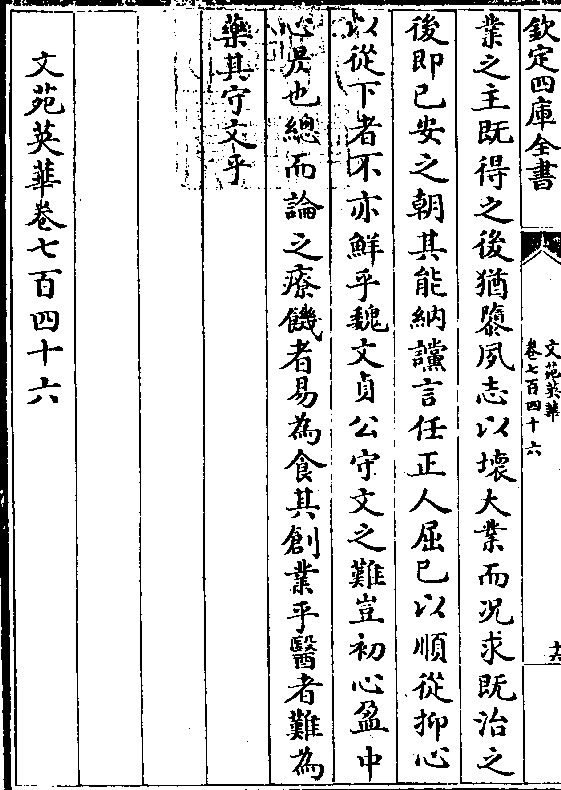 欽定四庫全書
文苑英華
卷七百四十六
十六
業之主既得之後猶隳夙志以壞大業而况求既治之
後即已安之朝其能納讜言任正人屈已以順從抑心
以從下者不亦鮮乎魏文貞公守文之難豈初心盈中
心是也總而論之療饑者易為食其創業乎醫者難為
藥其守文乎
文苑英華卷七百四十六